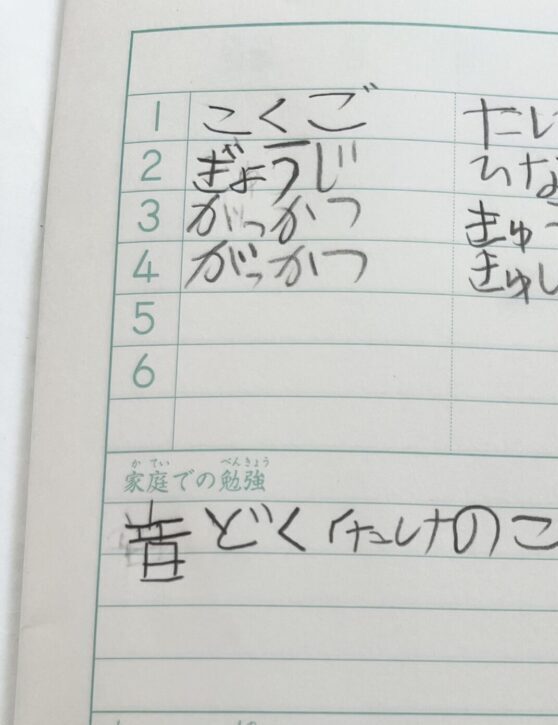 1 こくご たい
2 ぎょうじ ひな
3 がっかつ きゅう
4 がっかつ きゅし
5
6
家庭での勉強
かてい べんきょう
音どく(たけのこ